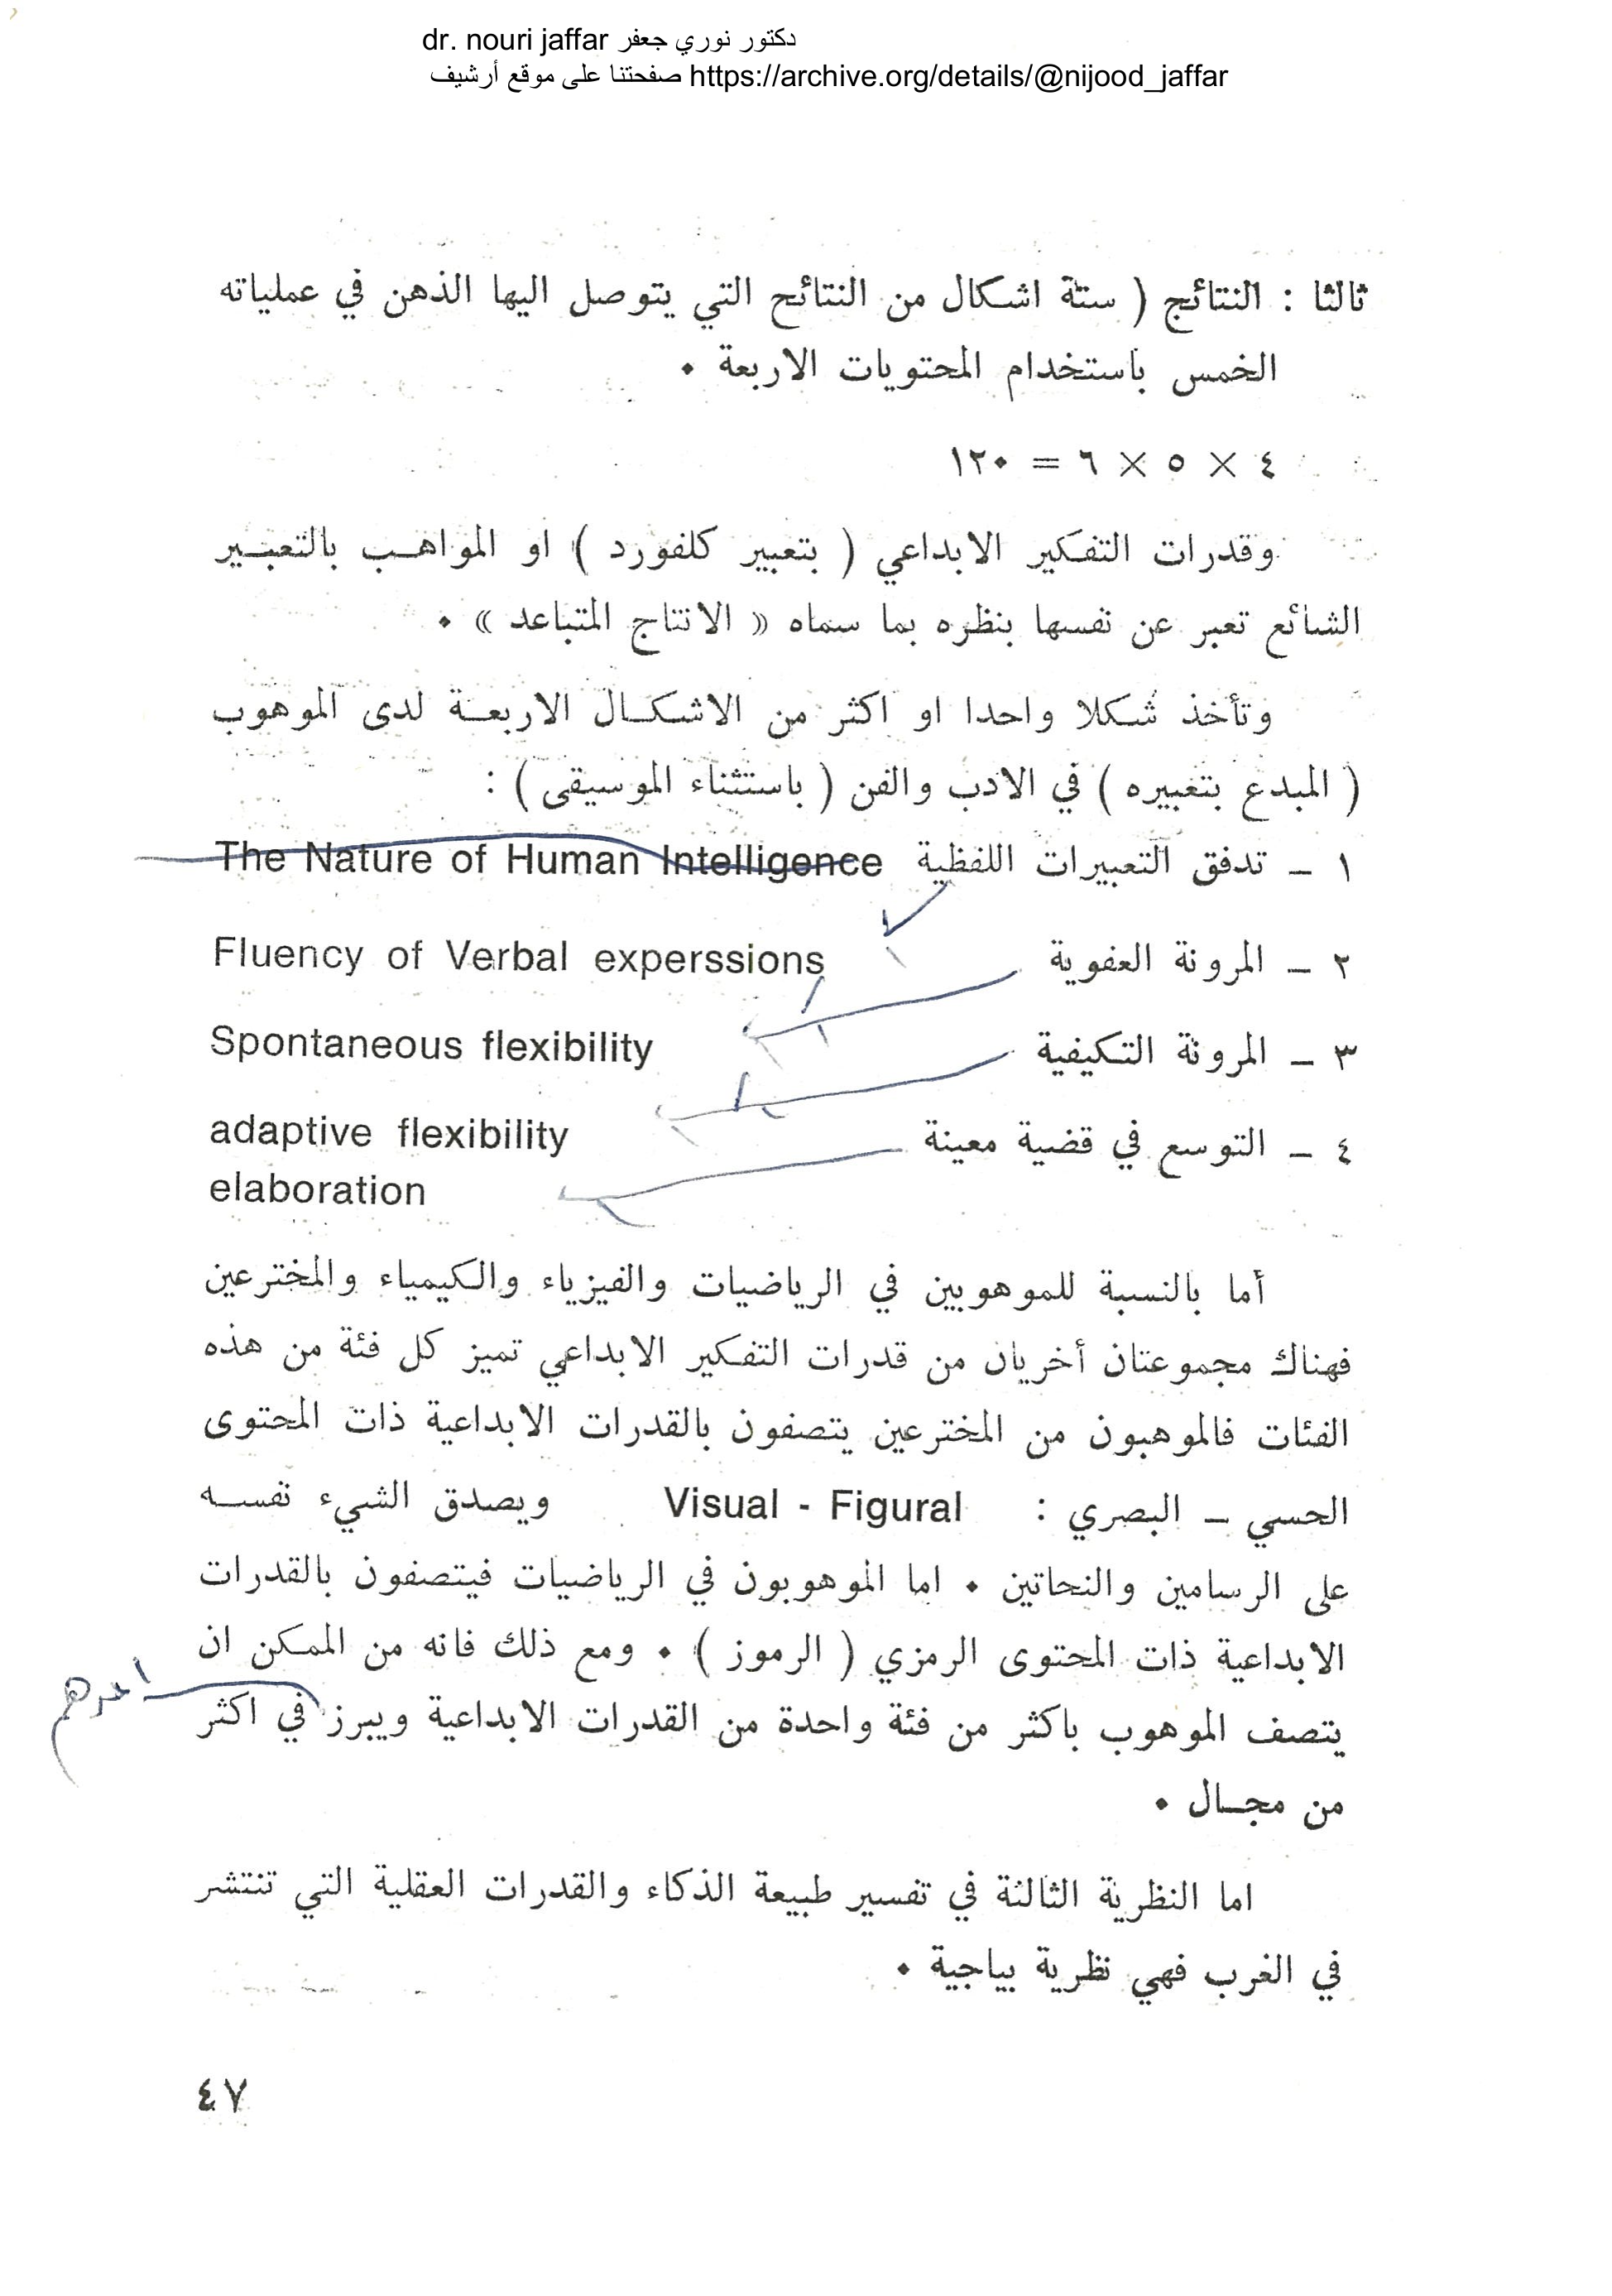 دكتور نوري جعفر dr. nouri jaffar
صفحتنا على موقع أرشيف https://archive.org/details/@nijood_jaffar
ثالثا : النتائج ( ستة اشكال من النتائج التي يتوصل اليها الذهن في عملياته
الخمس باستخدام المحتويات الاربعة .
٤ × ٥ × ٦ = ١٢٠
وقدرات التفكير الابداعي ( بتعبير كلفورد ) او المواهب بالتعبير
الشائع تعبر عن نفسها بنظره بما سماه « الانتاج المتباعد » .
وتأخذ شكلا واحدا او اكثر من الاشكال الاربعة لدى الموهوب
( المبدع بتعبيره ) في الادب والفن ( باستثناء الموسيقى ) :
١ – تدفق التعبيرات اللفظية The Nature of Human Intelligence
٢ – المرونة العفوية Fluency of Verbal experssions
٣ – المرونة التكيفية Spontaneous flexibility
٤ – التوسع في قضية معينة adaptive flexibility
elaboration
أما بالنسبة للموهوبين في الرياضيات والفيزياء والكيمياء والمخترعين
فهناك مجموعتان أخريان من قدرات التفكير الابداعي تميز كل فئة من هذه
الفئات فالموهبون من المخترعين يتصفون بالقدرات الابداعية ذات المحتوى
الحسي – البصري : Visual - Figural ويصدق الشيء نفسه
على الرسامين والنحاتين . اما الموهوبون في الرياضيات فيتصفون بالقدرات
الابداعية ذات المحتوى الرمزي ( الرموز ) . ومع ذلك فانه من الممكن ان
يتصف الموهوب باكثر من فئة واحدة من القدرات الابداعية ويبرز في اكثر
من مجال .
اما النظرية الثالثة في تفسير طبيعة الذكاء والقدرات العقلية التي تنتشر
في الغرب فهي نظرية بياجية .
٤٧